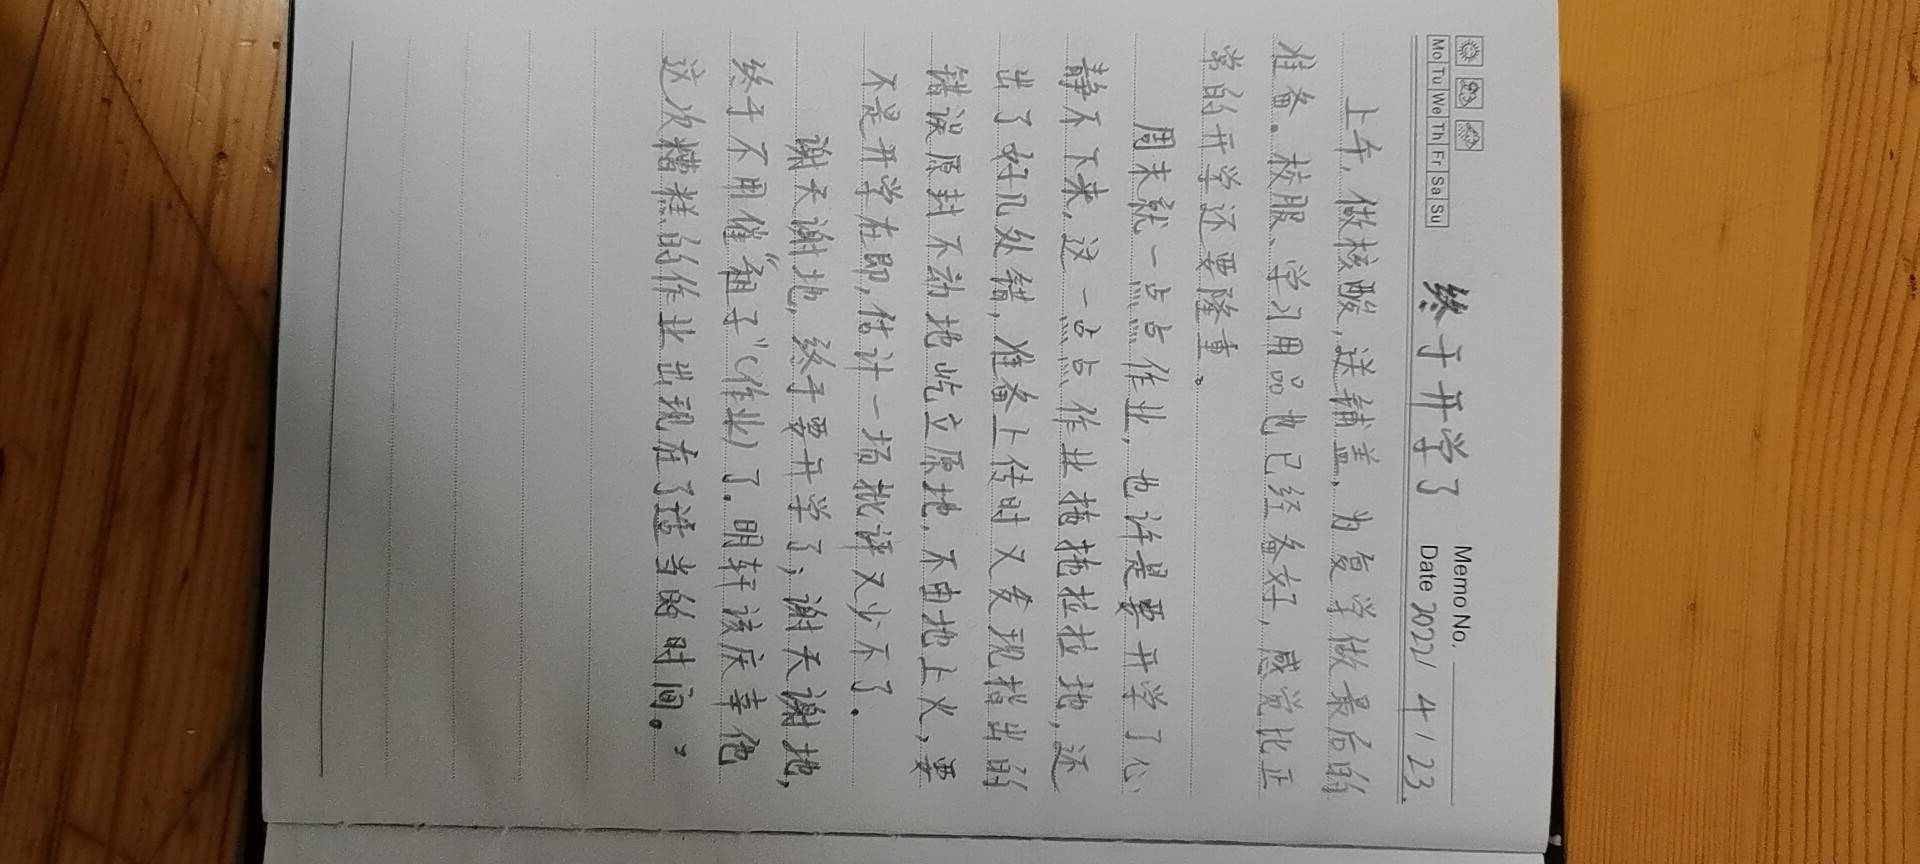 Mo Tu We Th Fr Sa Su
Memo No.
终于开学了
Date 2022/4/23.
上午,做核酸,送铺盖,为复学做最后的
准备。校服、学习用品也已经备好,感觉比正
常的开学还要隆重。
周末就一点点作业,也许是要开学了心
静不下来,这一点点作业拖拖拉拉地,还
出了好几处错,准备上传时又发现指出的
错误原封不动地屹立原地,不由地上火,要
不是开学在即,估计一场批评又少不了。
谢天谢地,终于要开学了;谢天谢地,
终于不用催“租子”(作业)了。明轩该庆幸他
这次糟糕的作业出现在了适当的时间。”